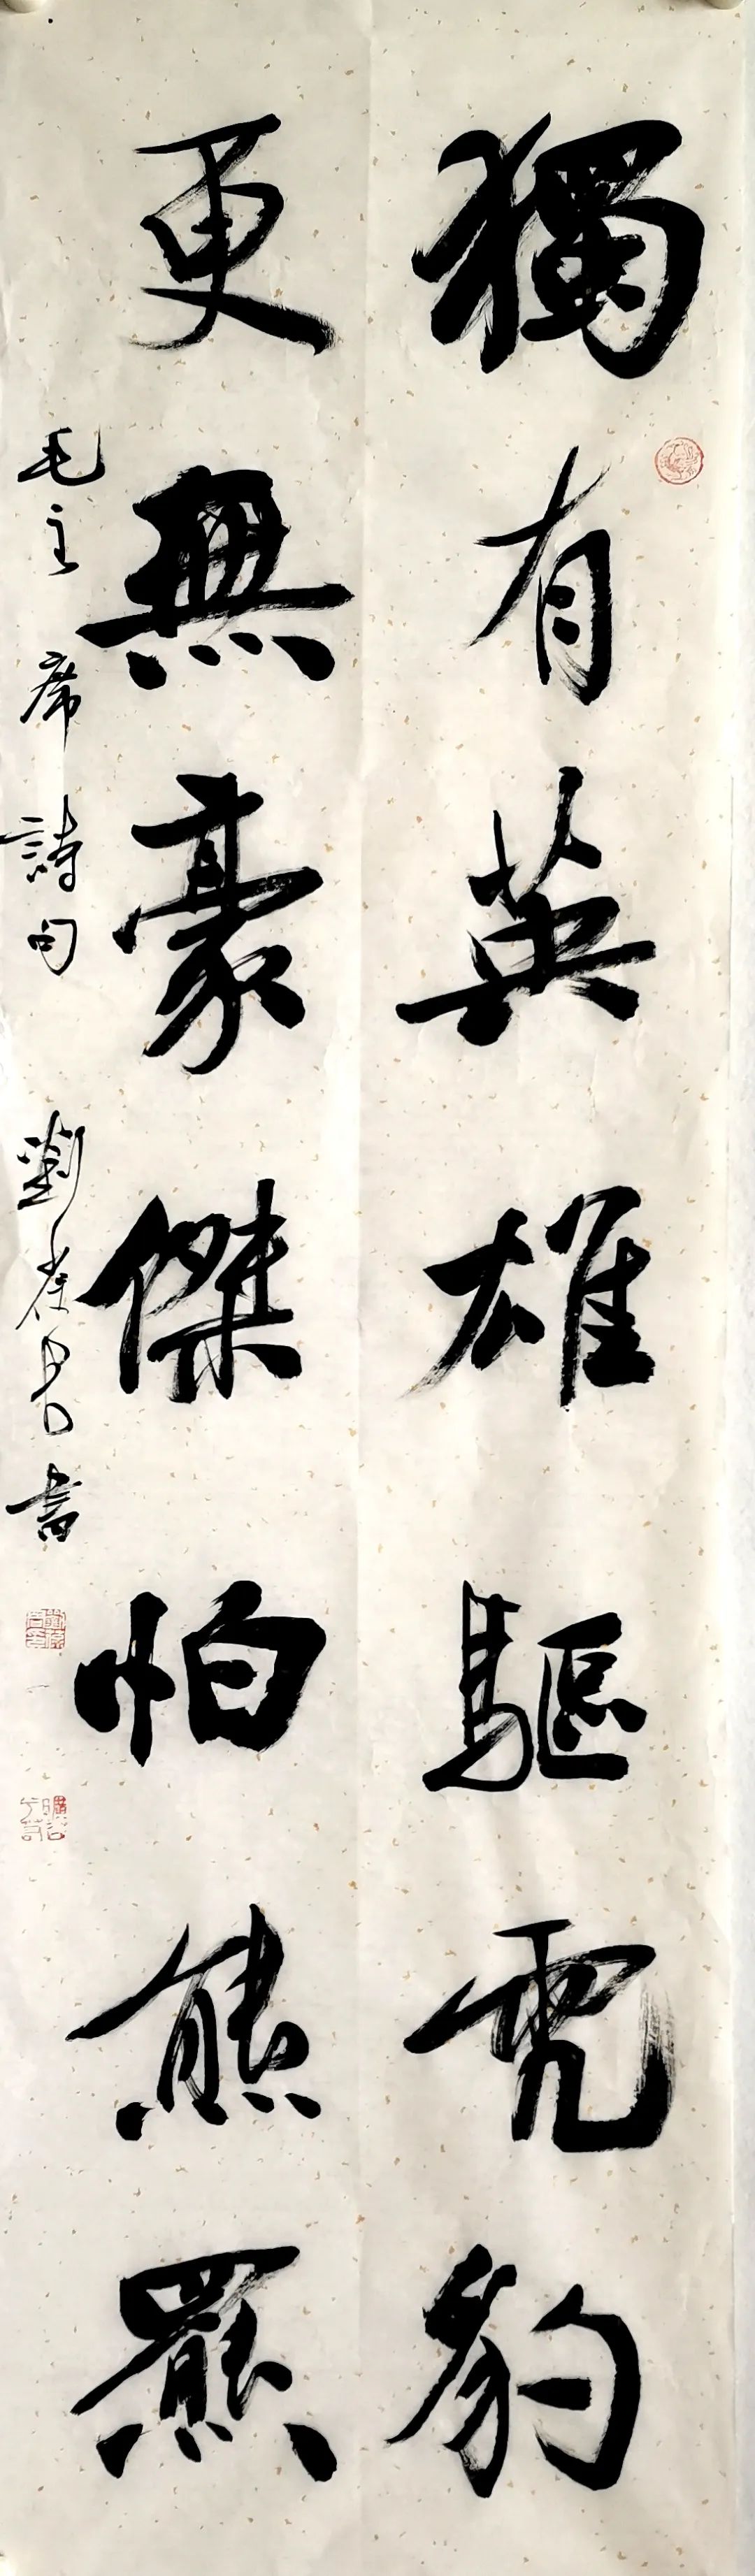 獨有英雄驅虎豹
更無豪傑怕熊羆
毛主席詩句 劉 書